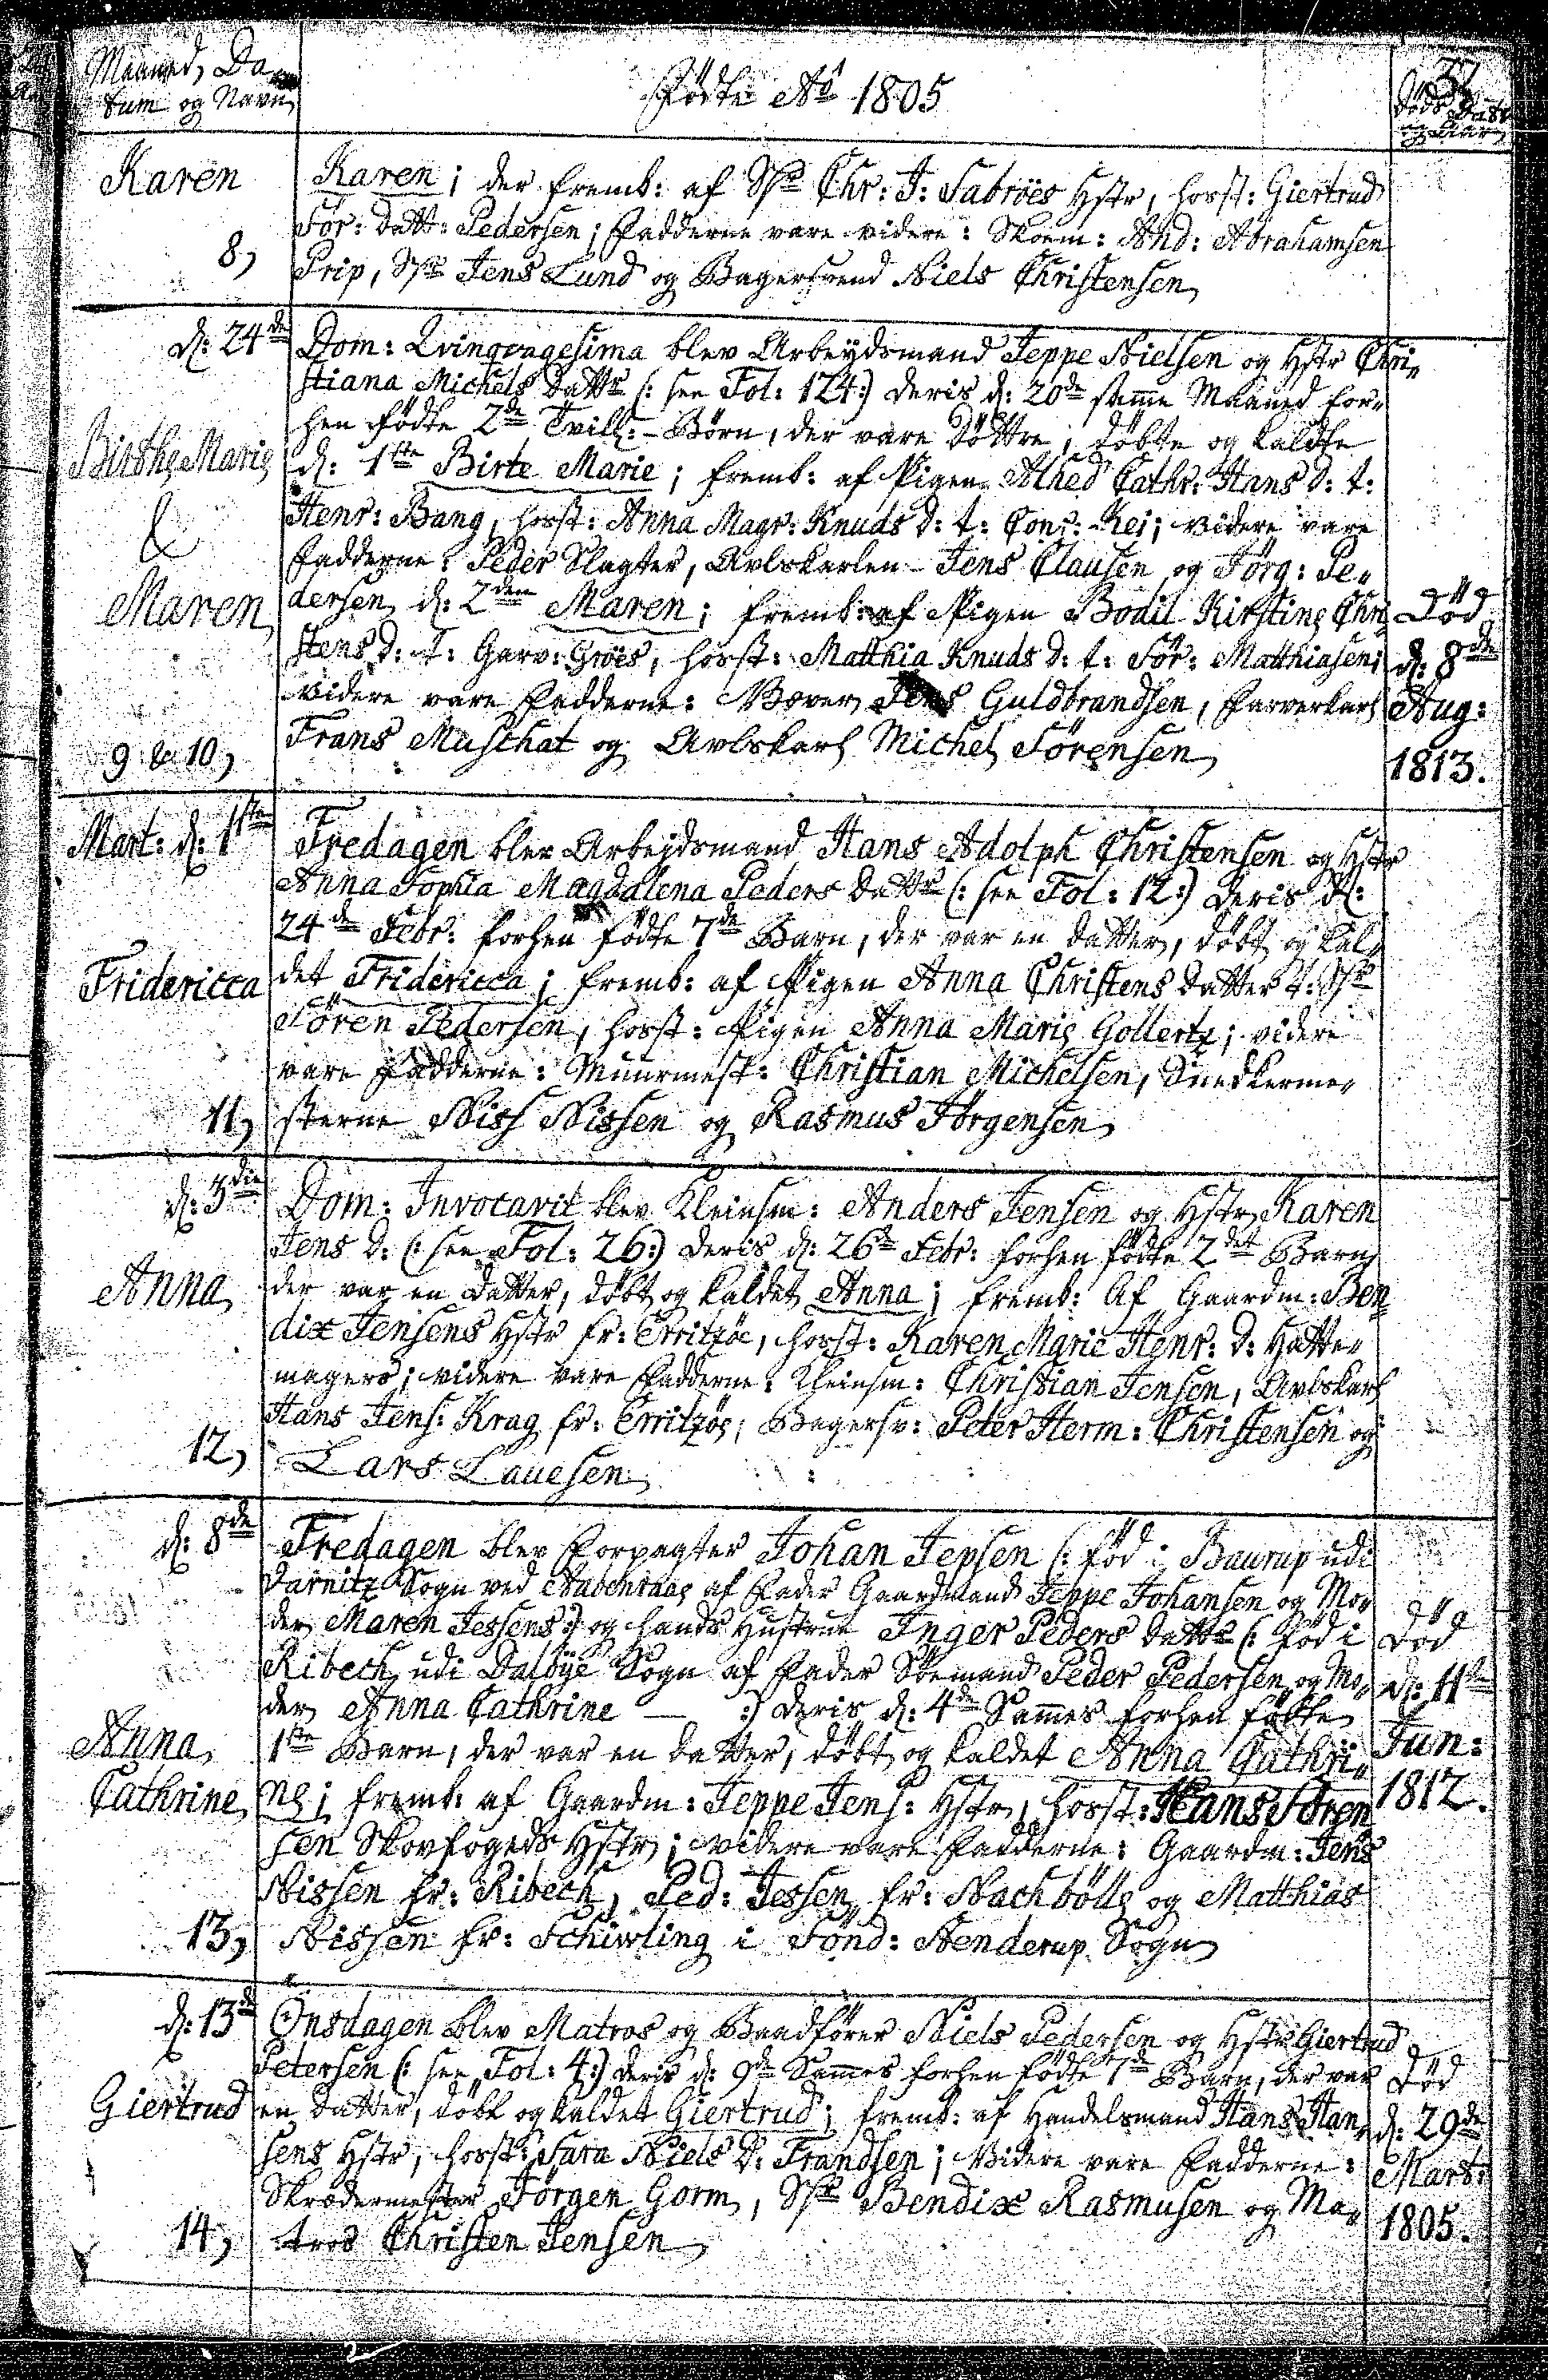 Maaned, Da-
tum og Navn
Födte Aō 1805
Döds Dato
og Aar
Karen
Karen; der fremb: af Skpr Chr: J: Sabröes Hstr, hosst: Giertrud
Sör: Datt: Pedersen; Fadderne vare videre: Skoem: And: Abrahamsen
8,
Prip, Skpr Jens Lund og Bagersvend Niels Christensen,
d: 24de
Dom: Qvinqvagesima blev Arbeydsmand Jeppe Nielsen og Hstr Chri-
stiana Michels Dattr (: see Fol: 124:) deris d: 20de samme Maaned for-
hen födte 2de Tvill:-Börn, der vare Döttre; döbte og kaldte
Birthe Marie
d: 1ste Birte Marie; fremb: af Pigen Alhed Cathr: Hans D: t:
&
Henr: Bang, hosst: Anna Magr: Knuds D: t: Cons: Kei; videre vare
Fadderne: Peder Slagter, Avlskarlen Jens Clausen og Jörg: Pe-
Maren
dersen, d: 2den Maren; fremb: af Pigen Bodil Kirstine Chri-
Död
stens D: t: Garv: Gröes, hosst: Matthia Knuds D: t: Sör: Matthiasen;
d: 8de
videre vare Fadderne: Væver Jens Guldbrandsen, Farverkarl
Aug:
9 & 10,
Frans Muschat og Avlskarl Michel Sörensen,
1813.
Mart: d: 1ste
Fredagen blev Arbejdsmand Hans Adolph Christensen og Hstr
Anna Sophia Magdalena Peders Dattr (: see Fol: 12:) deris d:
24de Febr: forhen födte 7de Barn, der var en Datter, döbt og kal-
Fridericca
det Fridericca; fremb: af Pigen Anna Christens Datter t: Skpr
Sören Pedersen, hosst: Pigen Anna Marie Gollertz; videre
vare Fadderne: Muurmest: Christian Michelsen, Snedkerme-
11,
sterne Niss Nissen og Rasmus Jörgensen,
d: 3die
Dom: Invocavit blev Kleinsm: Anders Jensen og Hstr Karen
Jens D: (: see Fol: 26:) deris d: 26de Febr: forhen födte 2det Barn,
Anna
der var en Datter, döbt og kaldet Anna; fremb: Af Gaardm: Ben-
dix Jensens Hstr fr: Erritzöe, hosst: Karen Marie Henr: D: Hatte-
magers; videre vare Fadderne: Kleinsm: Christian Jensen, Avlskarl
Hans Jens: Krag fr: Erritzöe, Bagersv: Peter Herm: Christensen og
12,
Lars Lauesen,
d: 8de
Fredagen blev Forpagter Johan Jepsen (: föd i Baurup udi
Varnitz Sogn ved Aabenraae af Fader Gaardmand Jeppe Johansen og Mo-
der Maren Jessens:) og hands Hustrue Inger Peders Dattr (: föd i
Död
Ribech udi Dalbÿe Sogn af Fader Söemand Peder Pedersen og Mo-
d: 11te
der Anna Cathrine — :) deris d: 4de Sammes forhen födte
Anna
1ste Barn, der var en Datter, döbt og kaldet Anna Cathri-
Jun:
Cathrine
ne; fremb: af Gaardm: Jeppe Jens: Hstr, hosst: Hans Sören
1812.
sen Skovfogeds Hstr; videre vare Fadderne: Gaardm: Jens
Nissen fr: Ribech, Ped: Jessen fr: Nachbölle og Matthias
13,
Nissen fr: Schiwling i Sönd: Stenderup Sogn,
d: 13de
Onsdagen blev Matros og Baadförer Niels Pedersen og Hstr Giertrud
Petersen (: see Fol: 4:) deris d: 9de Sammes forhen födte 7de Barn, der var
Död
Giertrud
en Datter, döbt og kaldet Giertrud; fremb: af Handelsmand Hans Han-
d: 29de
sens Hstr, hosst: Sara Niels D: Frandsen; Videre vare Fadderne:
Mart:
Skrædermester Jörgen Gorm, Skpr Bendix Rasmusen og Ma-
1805.
14,
tros Christen Jensen,